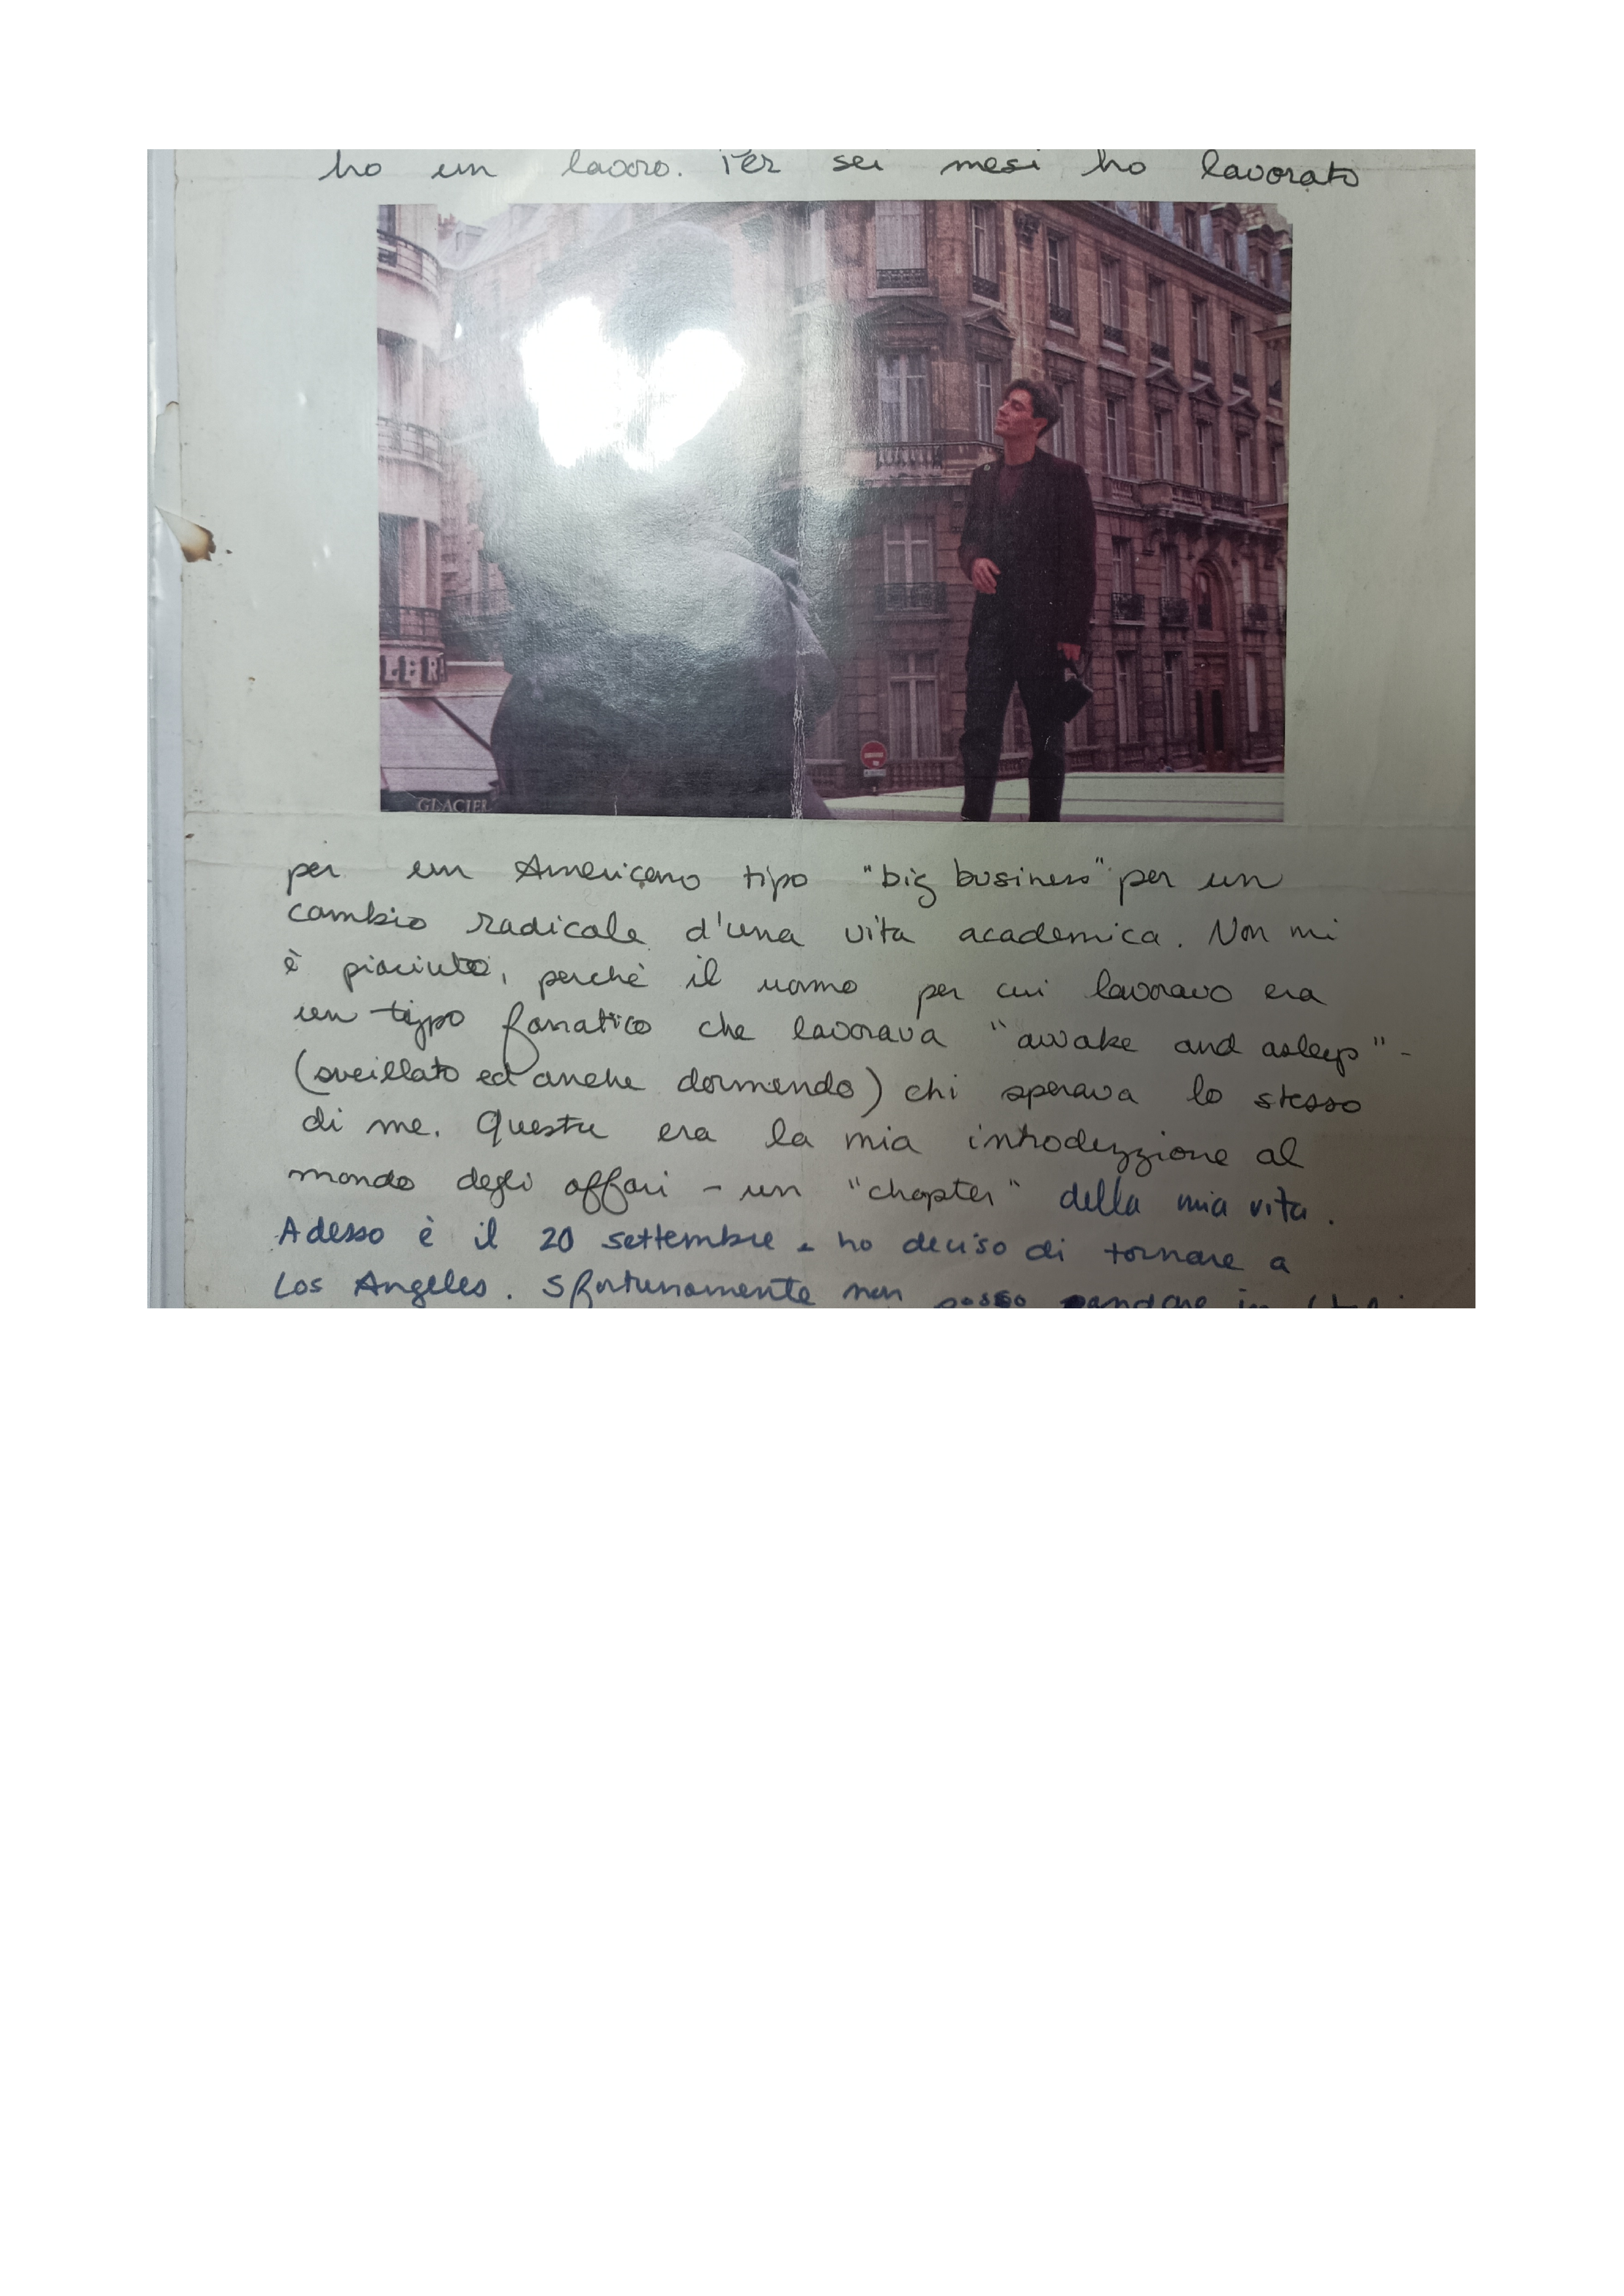 ho un lavoro. Per sei mesi ho lavorato
LER
GLACIER
per un Americano tipo "big business" per un
cambio radicale d'una vita academica. Non mi
è piaciuto, perchè il uomo per cui lavoravo era
un tippo fanatico che lavorava "awake and asleep" -
(sveillato ed anche dormendo) chi sperava lo stesso
di me. Questu era la mia introduzzione al
mondo degli affari - un "chapter" della mia vita.
Adesso è il 20 settembre e ho deciso di tornare a
Los Angeles. Sfortunamente non posso